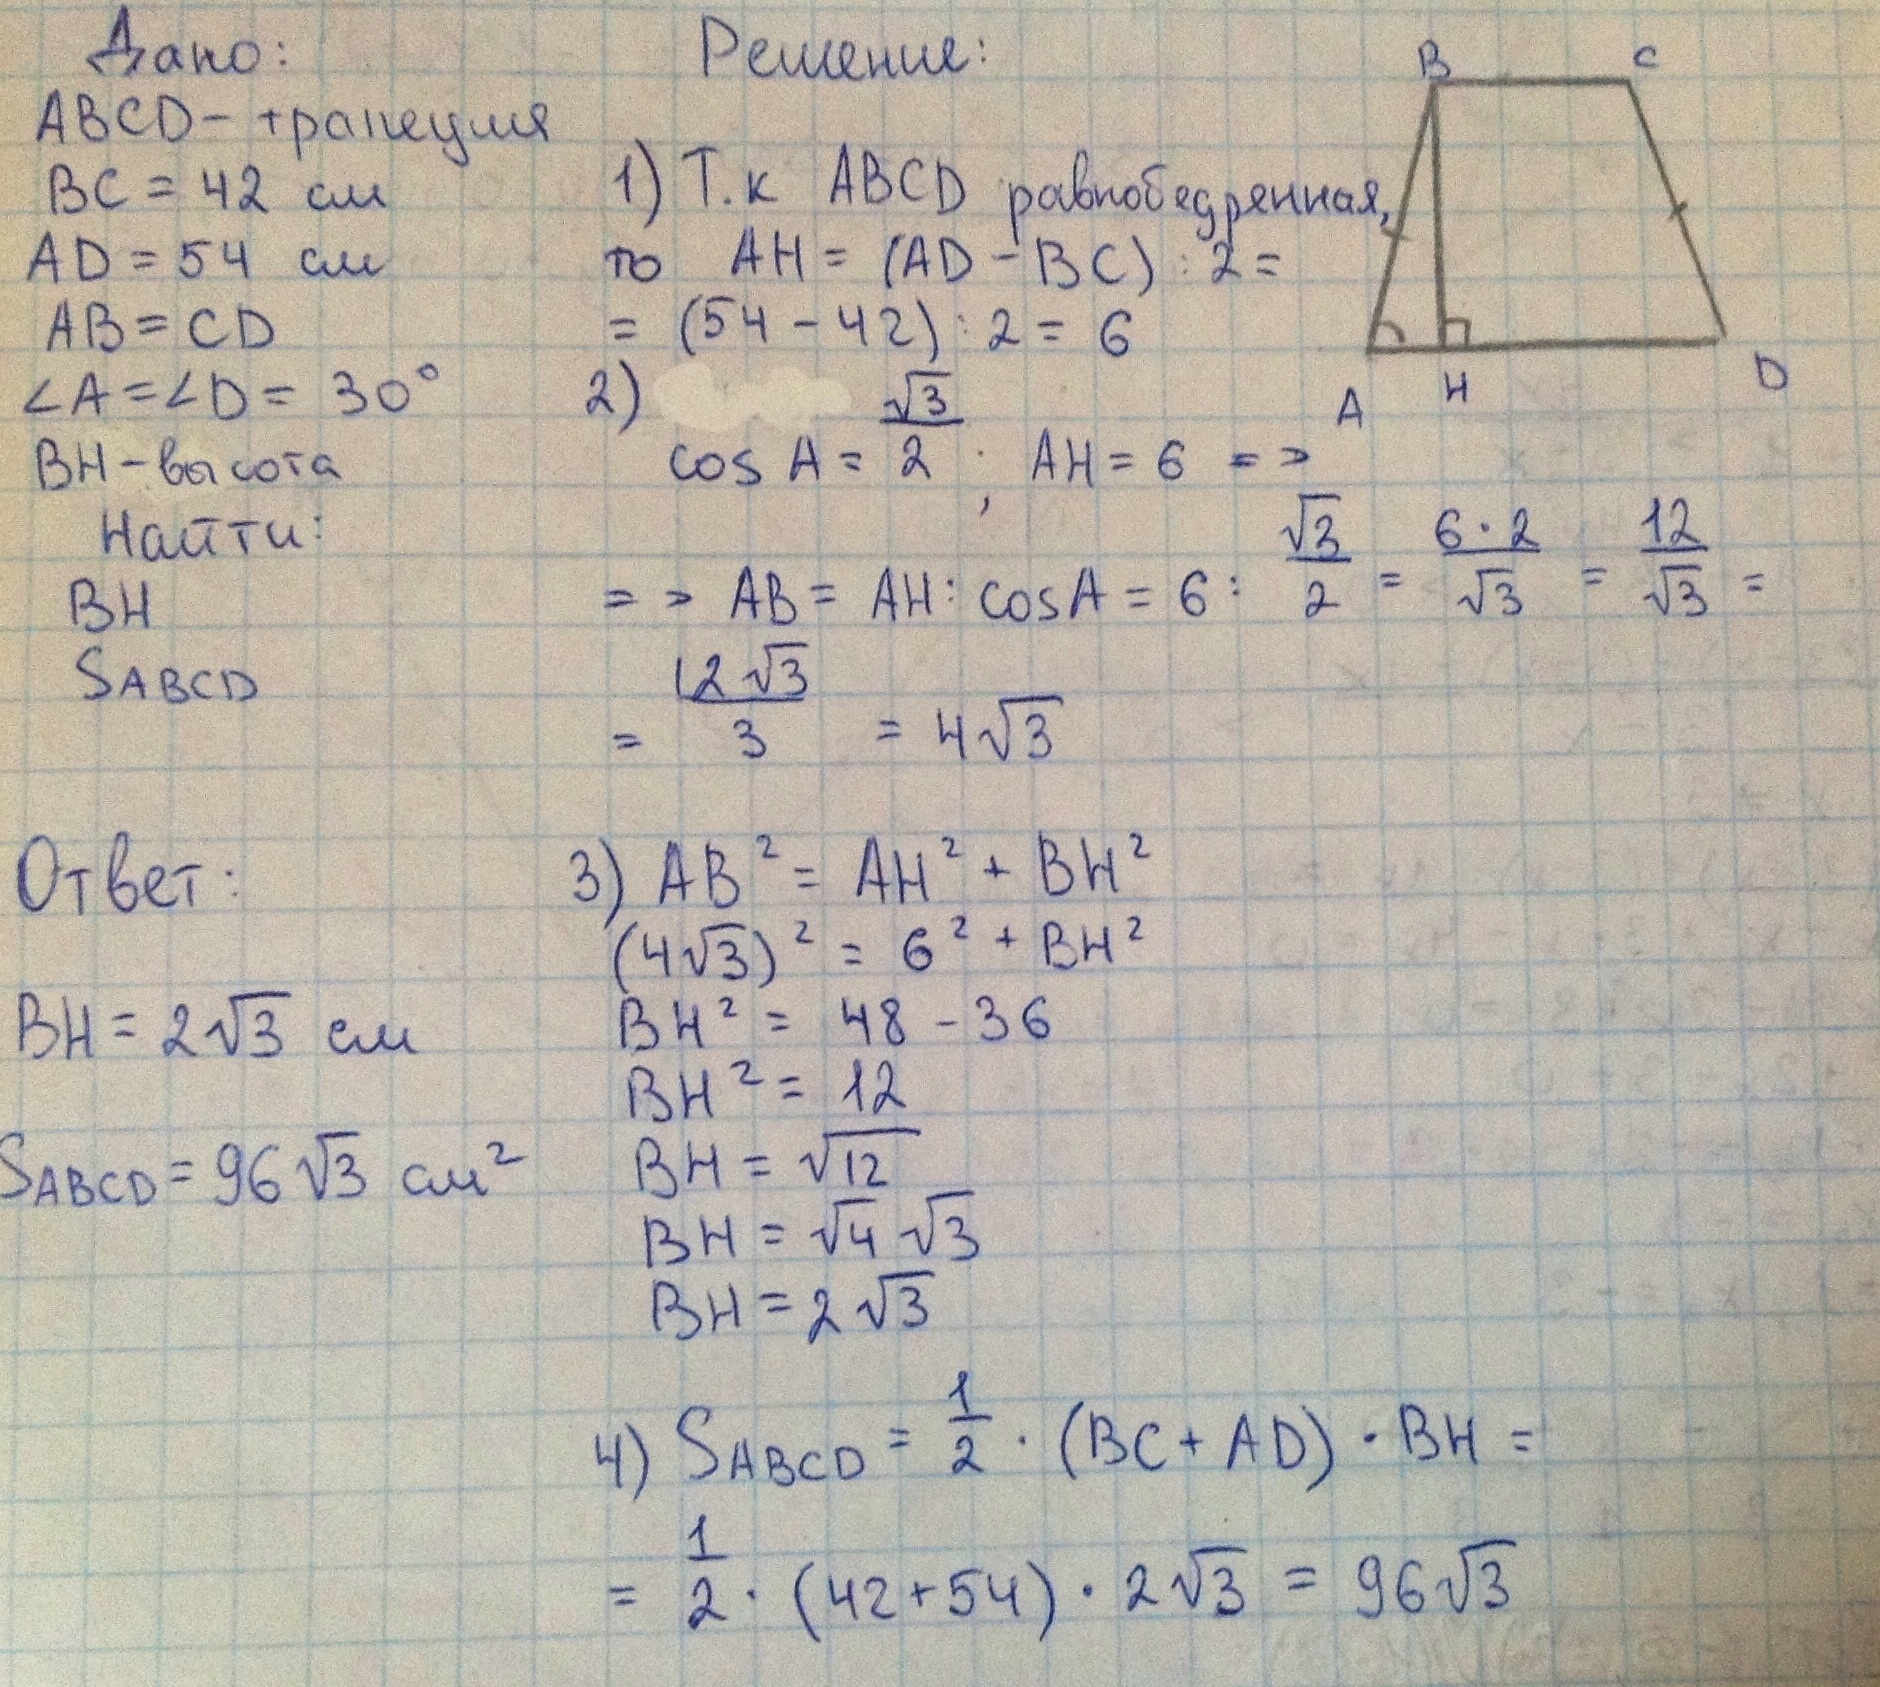 Дано:
ABCD - трапеция
BC = 42 см
AD = 54 см
AB = CD
∠A = ∠D = 30°
BH - высота
Найти:
BH
SABCD
Ответ:
BH = 2√3 см
SABCD = 96√3 см²
Решение:
1) Т.к ABCD равнобедренная,
то AH = (AD - BC) : 2 =
= (54 - 42) : 2 = 6
2)
cos A = √3/2 ; AH = 6 =>
=> AB = AH : cos A = 6 : √3/2 = 6·2/√3 = 12/√3 =
= 12√3/3 = 4√3
3) AB² = AH² + BH²
(4√3)² = 6² + BH²
BH² = 48 - 36
BH² = 12
BH = √12
BH = √4 √3
BH = 2√3
4) SABCD = 1/2 · (BC + AD) · BH =
= 1/2 · (42 + 54) · 2√3 = 96√3
B C
A H D